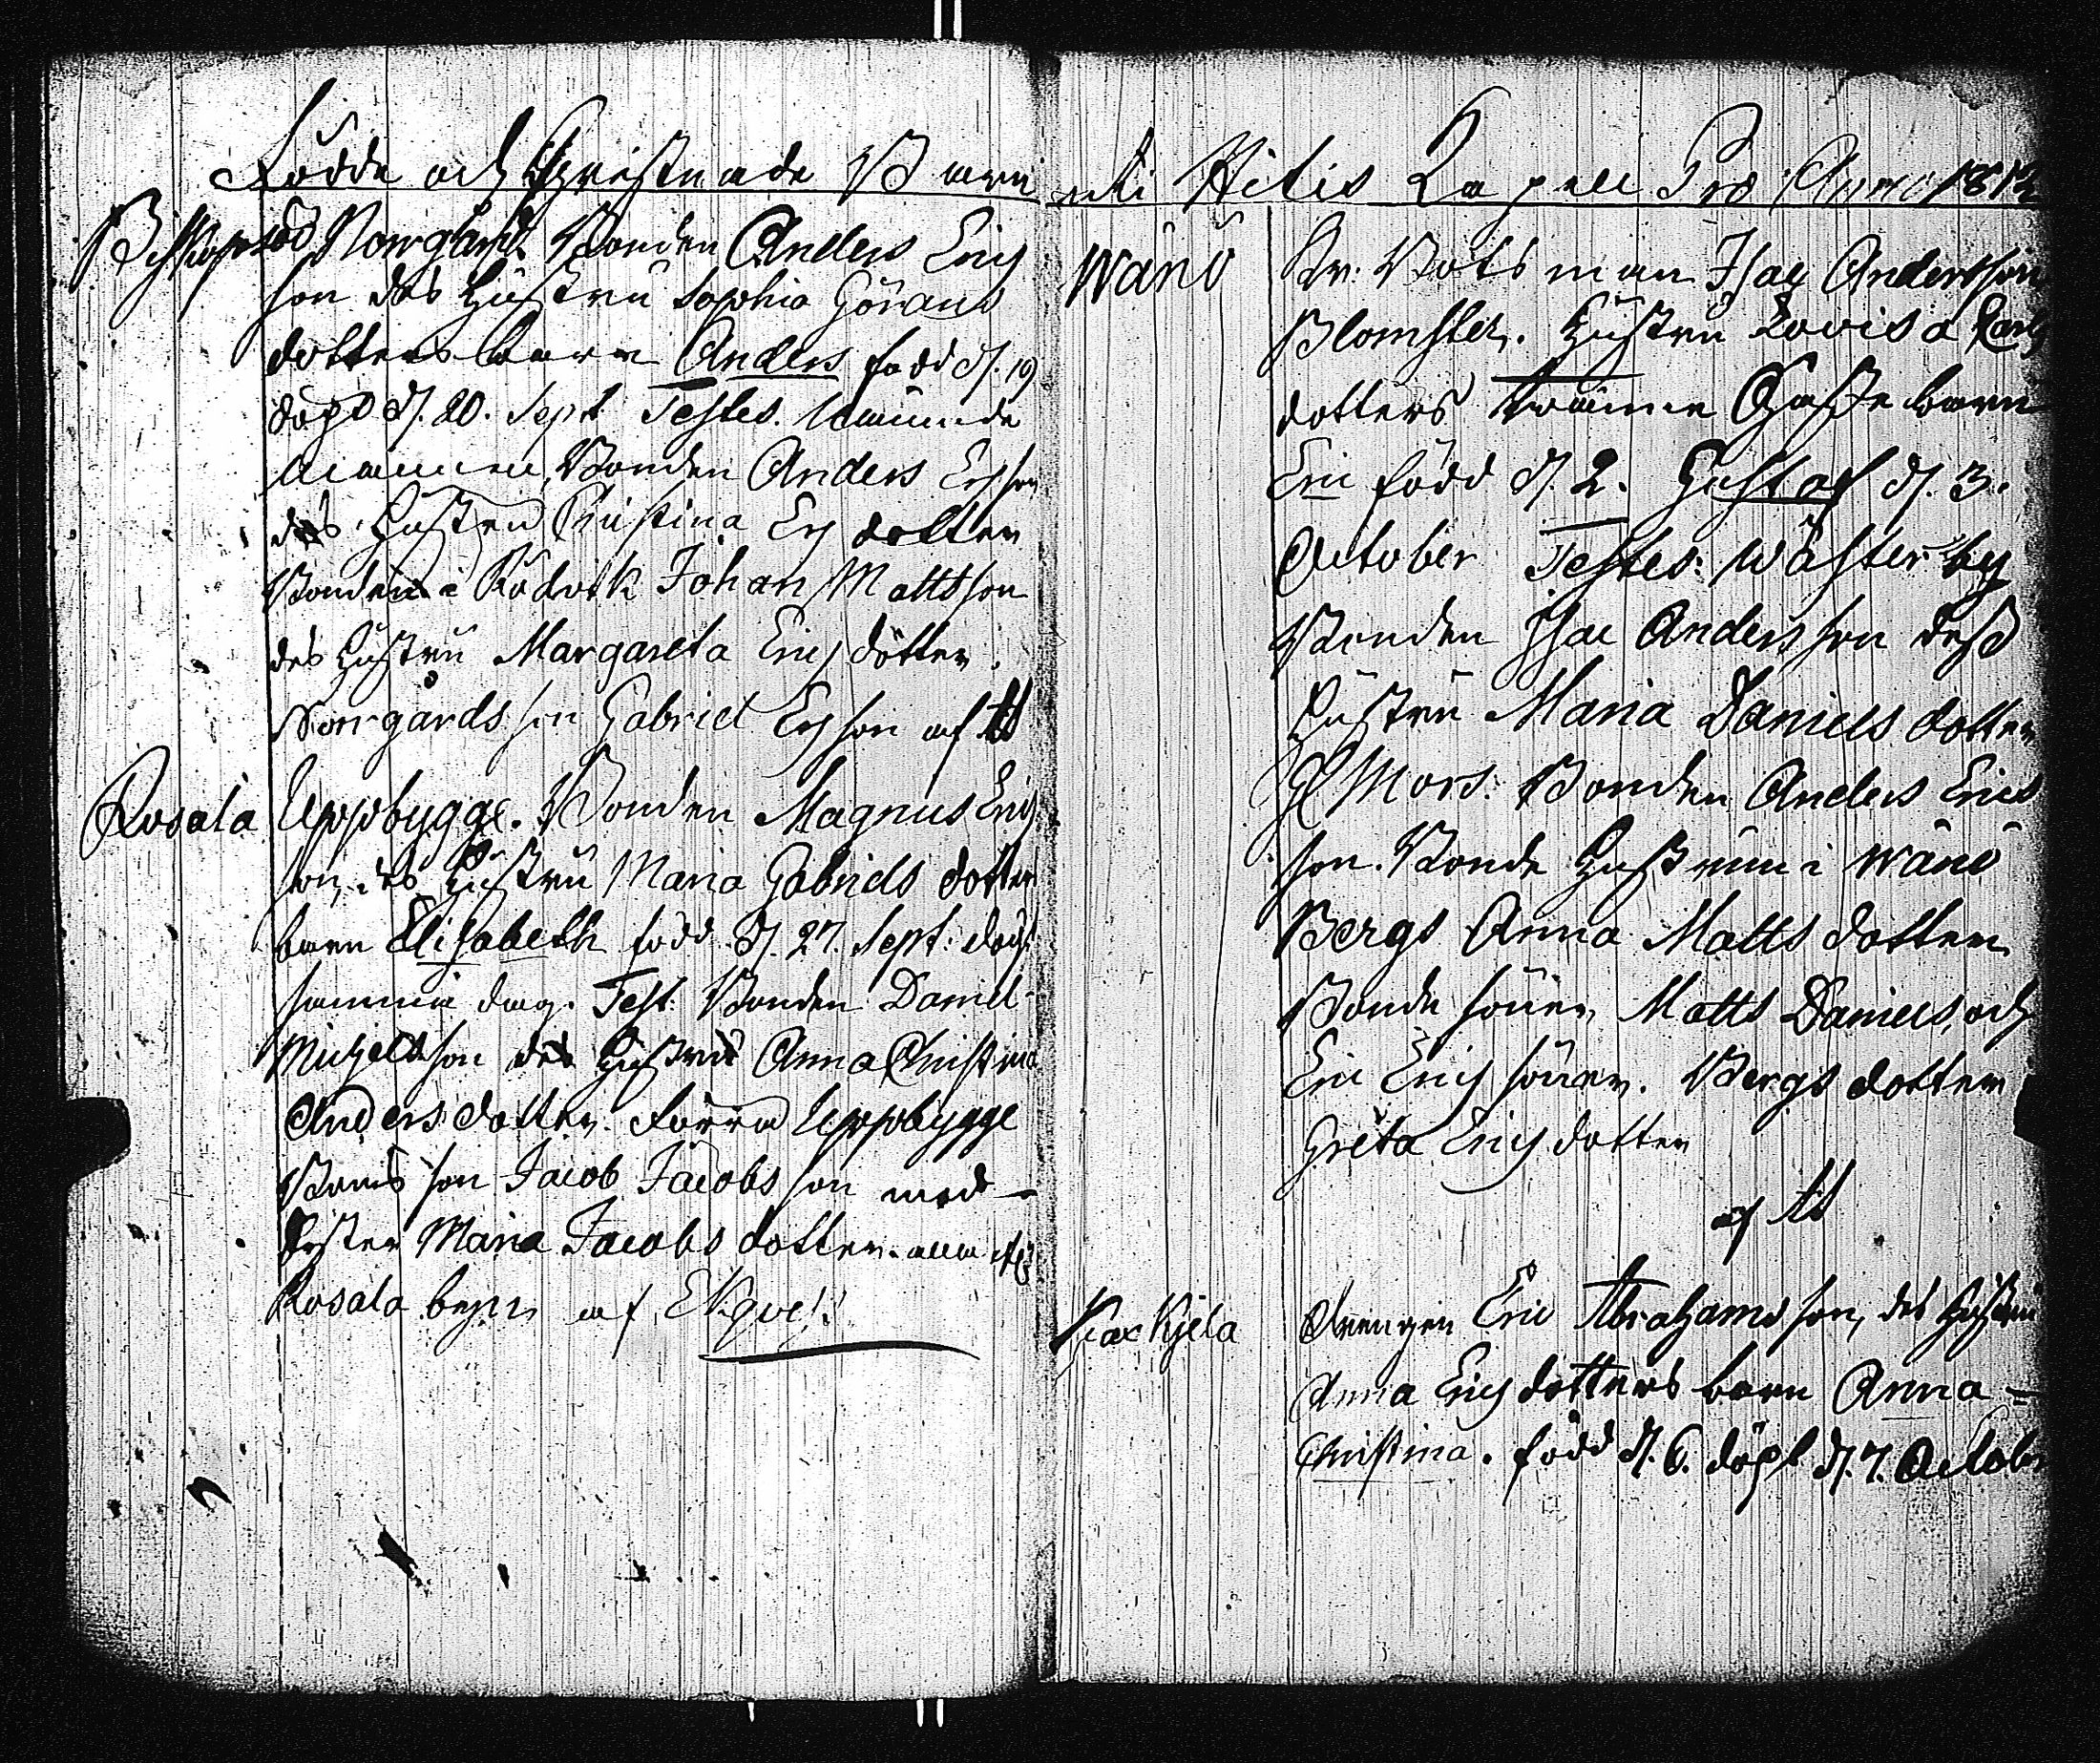 Födde och Christnade Barn
uti Hitis Capell Pro Anno 1812
Biskopsöö Norrgård. Bonden Anders Erics
son des Hustru Sophia Görans
dotters barn Anders född d. 19
döpt d. 20. Sept. Testes.
Bonden Anders Ersson
des Hustru Christina Ersdotter
Bonden i Rödvik Johan Mattsson
des Hustru Margareta Ericsdotter.
Norrgårds son Gabriel Ersson af
Rosala Uppbygge. Bonden Magnus Erics
son, des Hustru Maria Gabriels dotters
barn Elisabeth född d. 27. Sept: döpt
samma dag. Test: Bonden Daniel
Michelsson des Hustru Anna Christina
Anders dotter. Förra Uppbygge
Bonds son Jacob Jacobsson med
Syster Maria Jacobs dotter. alla ifr.
Rosala byn af Ekqvel:
Wänö Kr. Botsman Isac Andersson
Blomster. Hustru Lovisa Carls
dotters tvänne Gosse barn
Eric född d. 2. Gustaf d. 3.
October Testes: Wästerby
Bonden Isac Andersson dess
Hustru Maria Daniels dotter
Gl Mors: Bonden Anders Erics
son. Bonde Hustrun i Wänö
Bergs Anna Matts dotter
Bonde söner, Matts Daniels, och
Eric Erics söner. Bergs dotter
Greta Erics dotter
af
Kjela Drengen Eric Abrahamsson, des Hustru
Anna Ericsdotters barn Anna
Christina. född d. 6. döpt d. 7. October